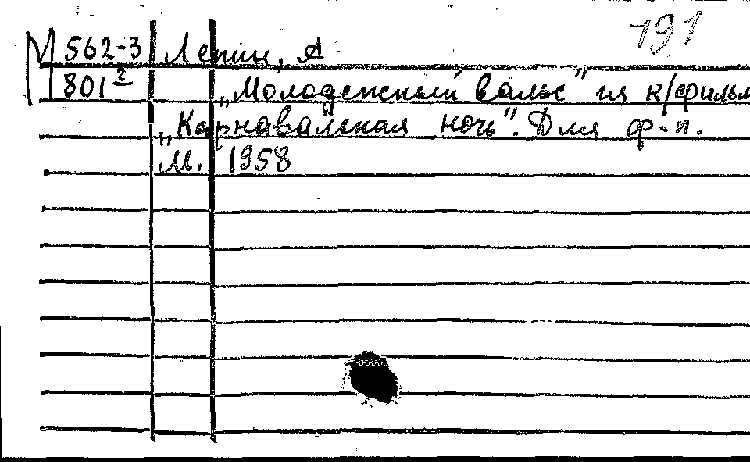 191
М 562-3 Лепин, А
801² „Молодежный вальс" из к/фильм
„Карнавальная ночь". Для ф-п.
М. 1958